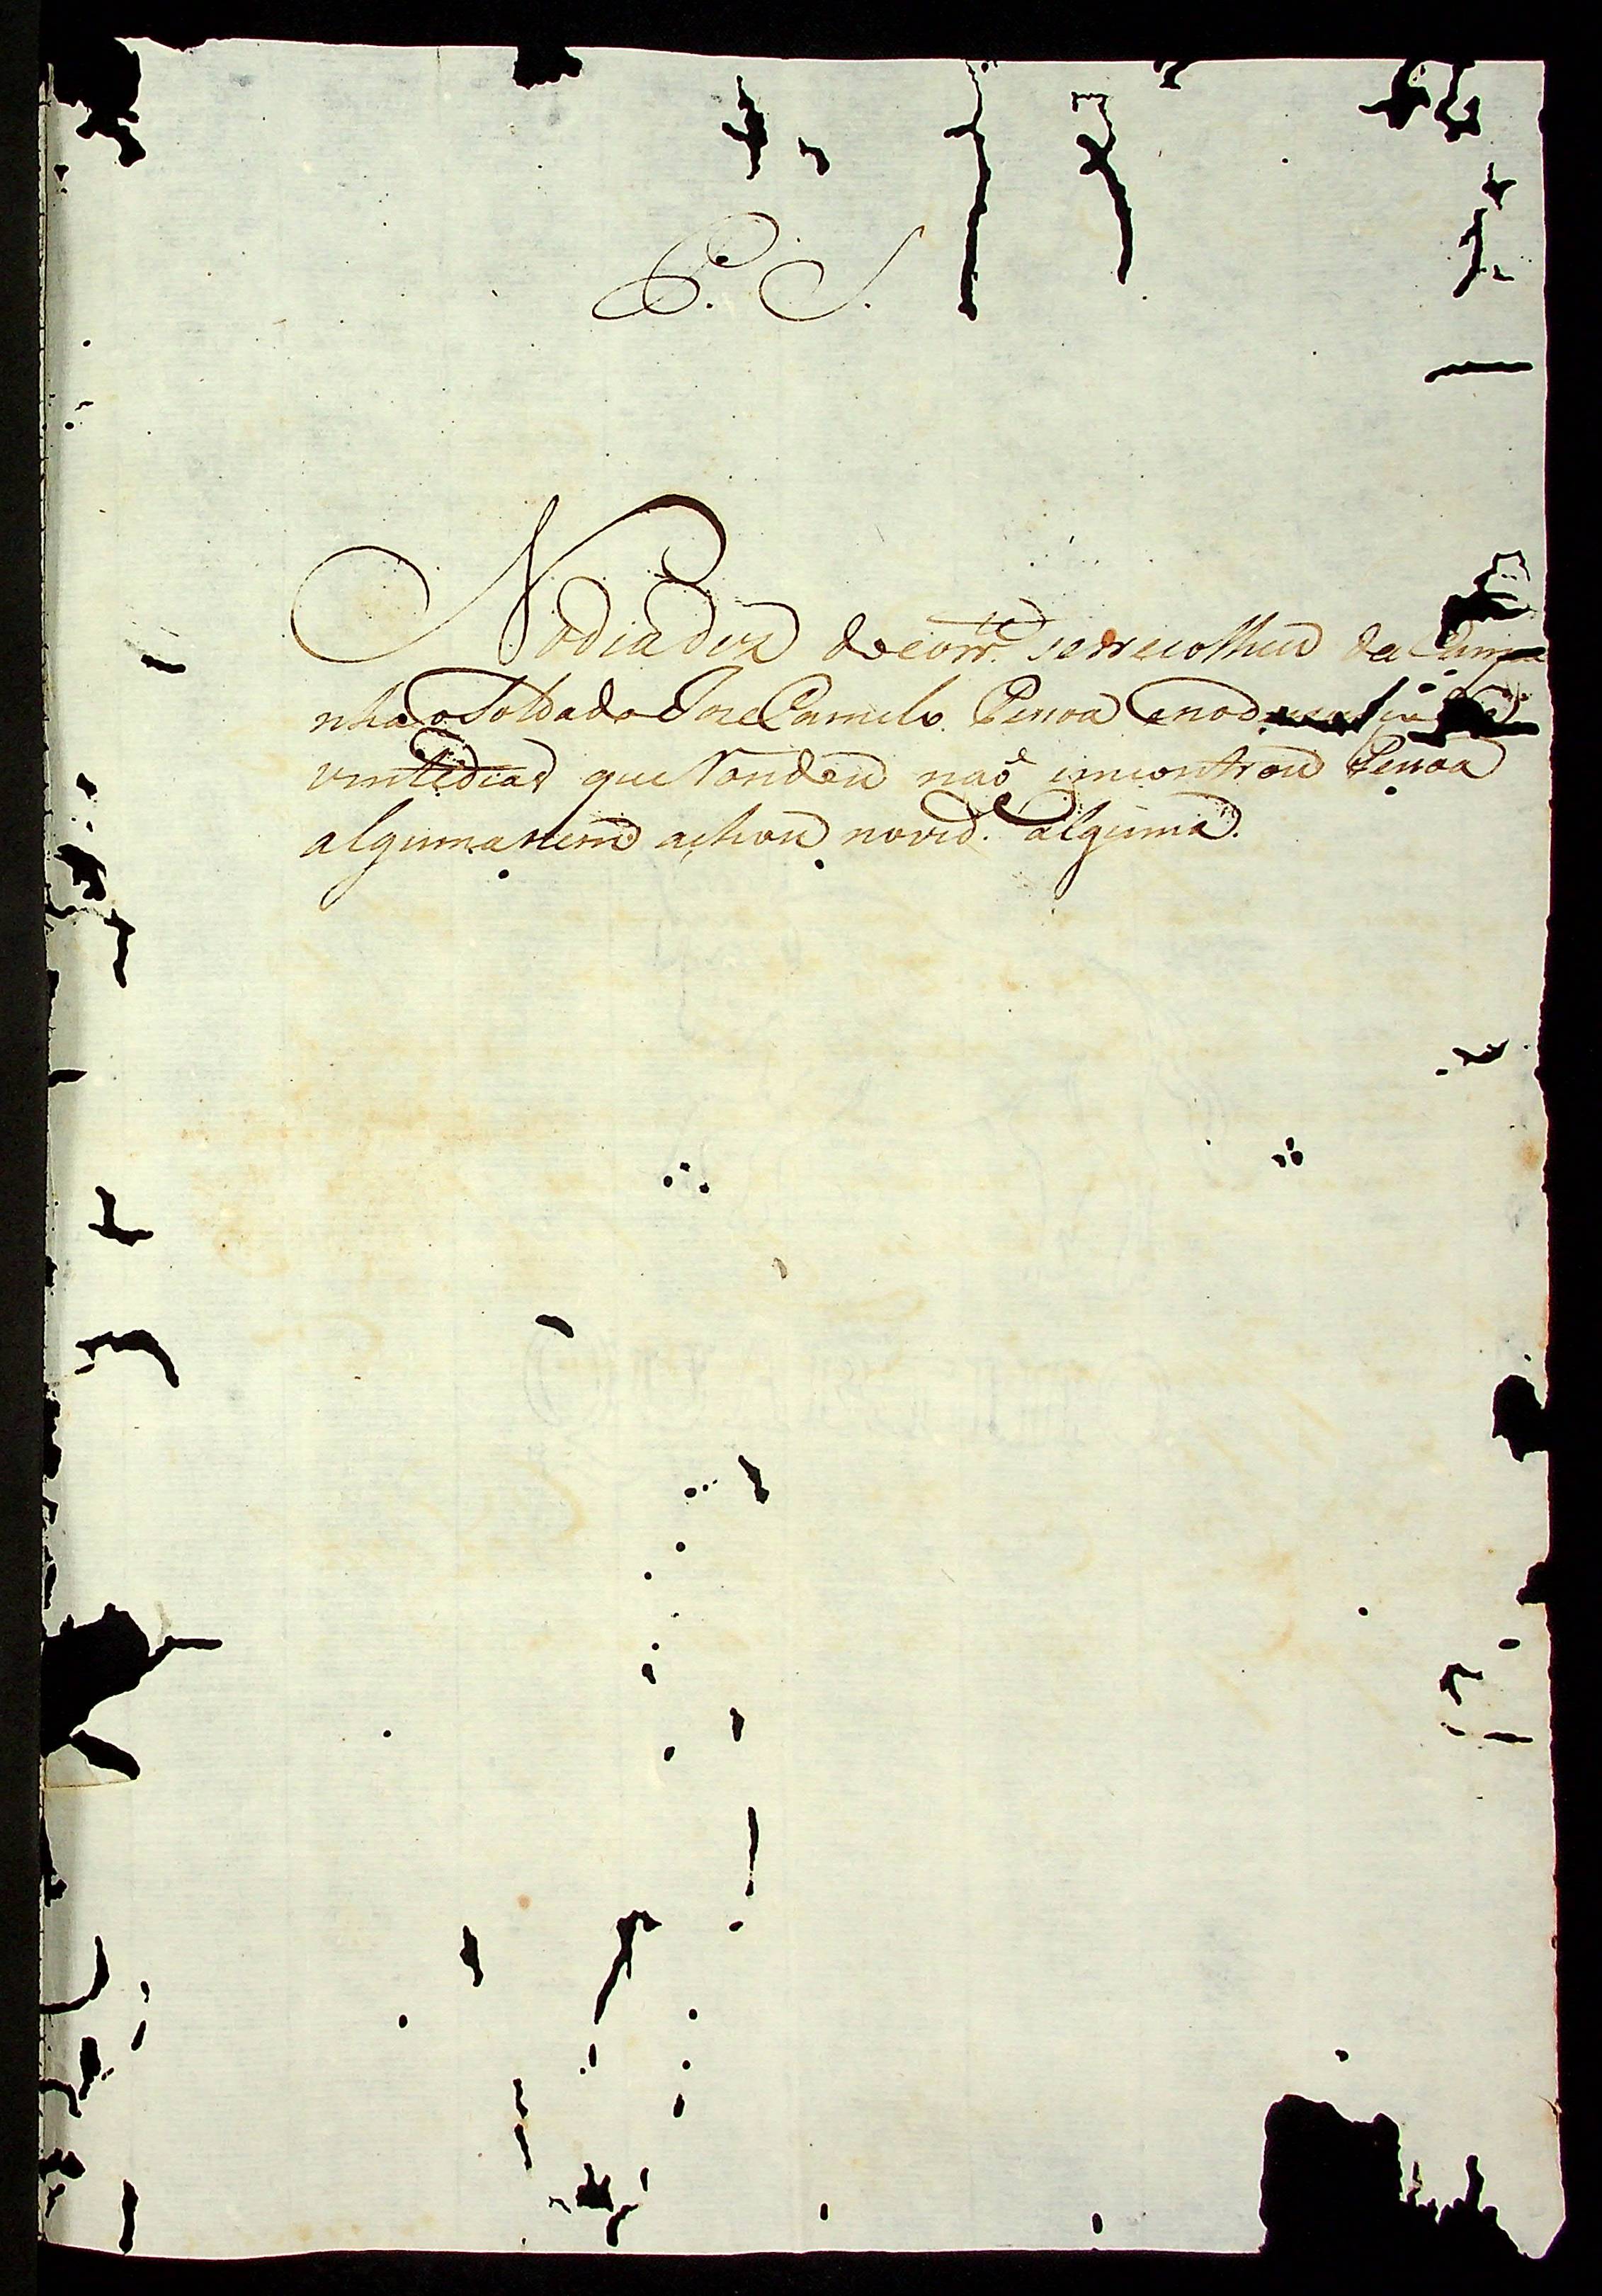 P. S.
No dia dez do corr.te se recolheu da Campa
nha o Soldado Jose Camelo Pessoa e no d
vinte dias que Rondou naõ emcontrou Pessoa
alguma nem achou novid.e alguma.